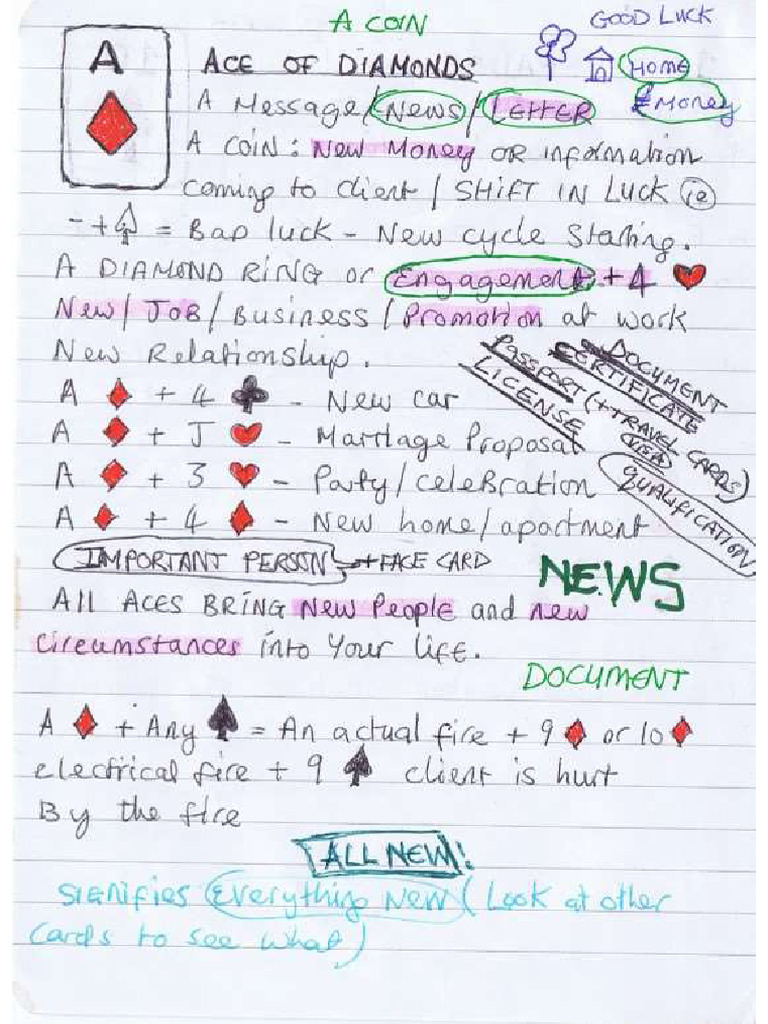 A COIN
GOOD LUCK
A
ACE OF DIAMONDS
HOME
A Message/News/LETTER
£Money
A COIN: New Money OR information
coming to client / SHIFT IN LUCK ie
-+♤ = Bad luck - New cycle Starting.
A DIAMOND RING or Engagement + 4 ♥
New/JOB/Business/Promotion at work
New Relationship.
DOCUMENT
CERTIFICATE
PASSPORT (+TRAVEL CARDS)
VISA
LICENSE
QUALIFICATION
A ♦ + 4 ♣ - New car
A ♦ + J ♥ - Marriage Proposal
A ♦ + 3 ♥ - Party/celebration
A ♦ + 4 ♦ - New home/apartment
IMPORTANT PERSON + FACE CARD
NEWS
All ACES BRING New People and new
circumstances into Your Life.
DOCUMENT
A ♦ + Any ♠ = An actual fire + 9 ♦ or 10 ♦
electrical fire + 9 ♠ client is hurt
By the fire
ALL NEW!
Signifies Everything New (Look at other
cards to see what)